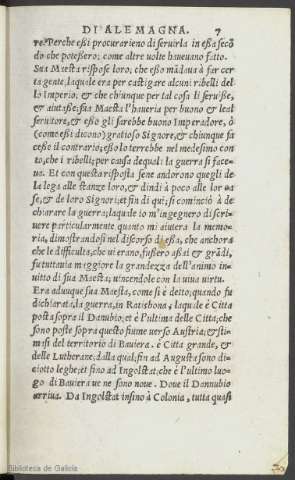 DI ALEMAGNA. 7
re. Perche eßi procurarieno di seruirla in eßa secō
do che poteßero; come altre uolte haueuano fatto.
Sua Maesta rispose loro; che eßo mādaua à far cer
ta gente; laquale era per castigare alcuni ribelli del
lo Imperio. & che chiunque per tal cosa li seruisse,
& aiutasse; sua Maesta l'haueria per buono & leal
seruitore, & eßo gli sarebbe buono Imperadore, ò
(come eßi dicono) gratioso Signore, & chiunque fa
cese il contrario; eßo lo terrebbe nel medesimo con
to, che i ribelli; per causa dequali la guerra si face-
ua. Et con questa risposta sene andorono quegli de
la lega alle stanze loro, & dindi à poco alle lor ca
se, & de loro Signori; et fin di qui; si cominciò à de
chiarare la guerra; laquale io m'ingegnero di scri-
uere particularmente quanto mi aiutera la memo-
ria, dimostrandosi nel discorso di eßa, che anchora
che le difficulta, che ui erano, fußero aßai & grādi,
fu tuttauia maggiore la grandezza dell'animo in-
uitto di sua Maesta; uincendole con la uiua uirtu.
Era adunque sua Maesta, come si è detto, quando fu
dichiarata, la guerra, in Ratisbona, laquale è Citta
posta sopra il Danubio, et è l'ultima delle Citta, che
sono poste sopra questo fiume uerso Austria; & sti-
masi del territorio di Bauiera. è Citta grande, &
delle Lutherane; dalla qual, fin ad Augusta sono di-
ciotto leghe; et fino ad Ingolstat; che è l'ultimo luo-
go di Bauiera ue ne sono noue. Doue il Dannubio
arriua. Da Ingolstat insino à Colonia, tutta quasi
Biblioteca de Galicia